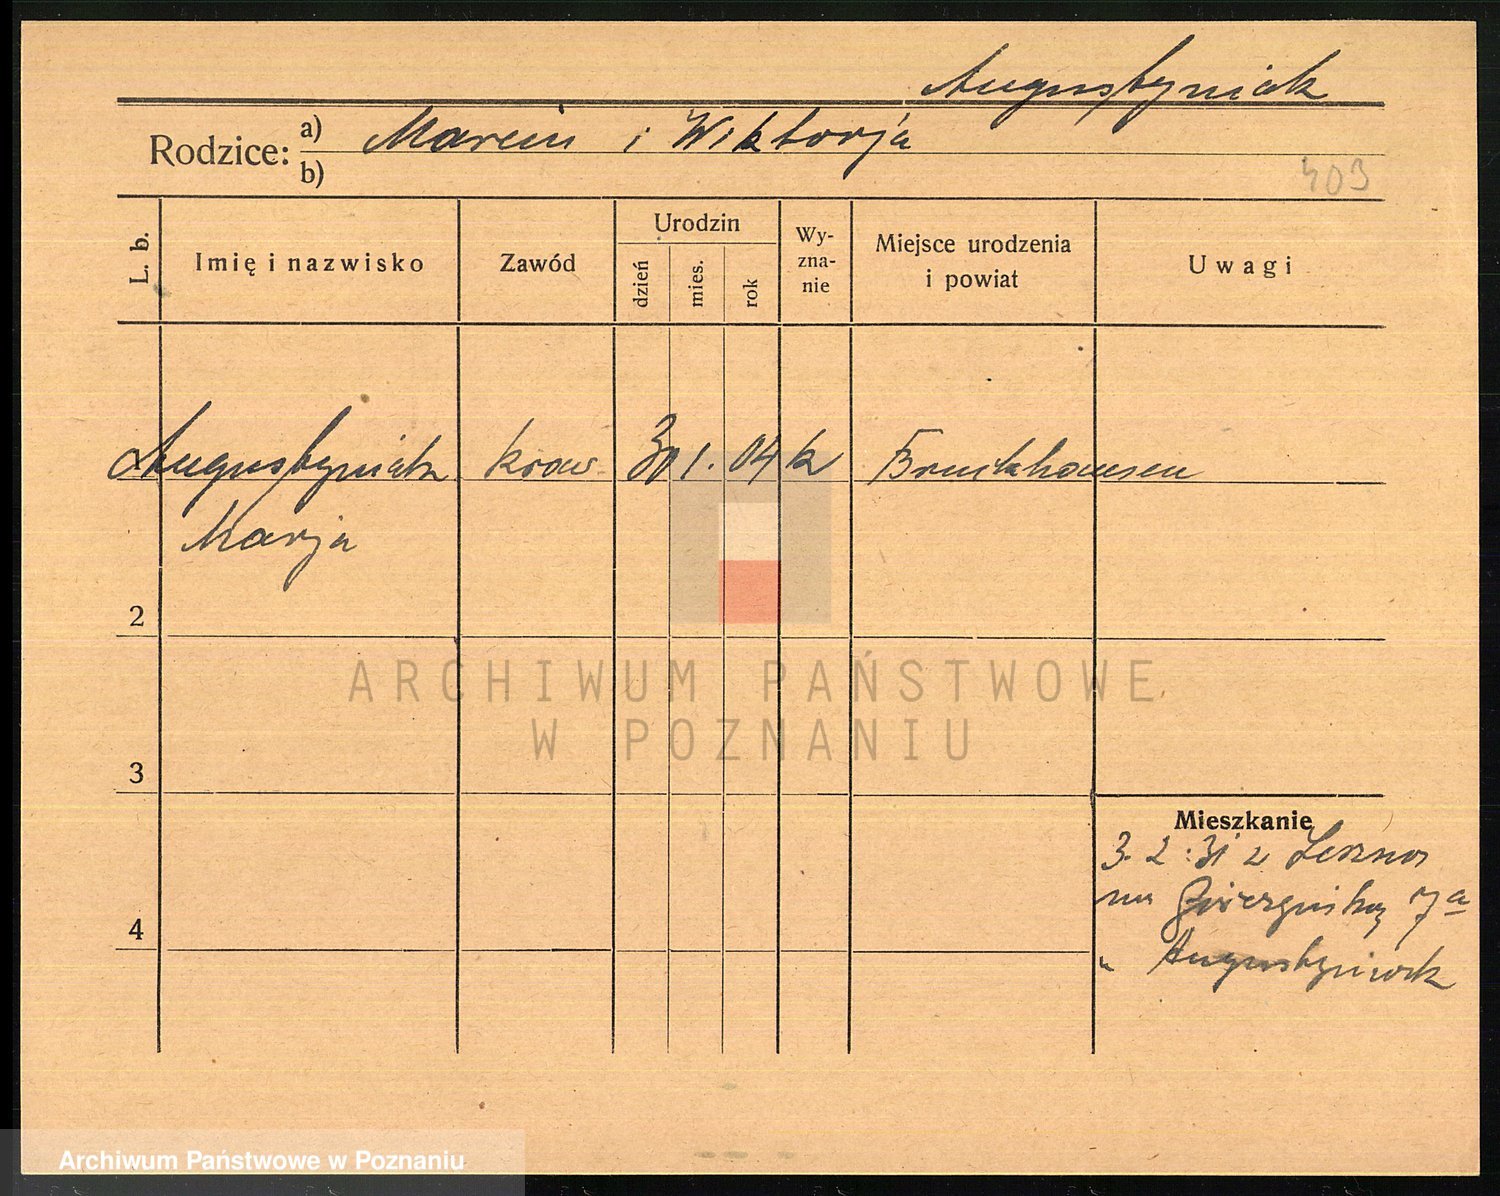 Augustyniak
Rodzice: a) Marcin i Wiktorja
b)
403
L. b.
Imię i nazwisko
Zawód
Urodzin
dzień
mies.
rok
Wy-
zna-
nie
Miejsce urodzenia
i powiat
Uwagi
Augustyniak kraw. 30 1. 04 k Bruckhausen
Marja
2
3
4
Mieszkanie
3. 2. 31 z Leszna
na Zwierzyniecką 7a
u Augustyniak
ARCHIWUM PAŃSTWOWE
W POZNANIU
Archiwum Państwowe w Poznaniu